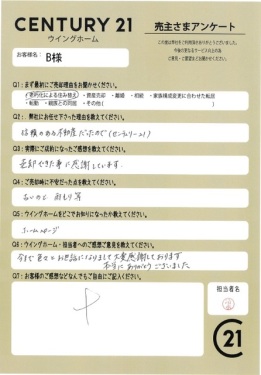 CENTURY 21
ウイングホーム
売主さまアンケート
この度は弊社をご利用頂きありがとうございました。
今後の更なるサービスの為
ご意見・ご要望などお聞かせください。
お客様名：
B様
Q1：まず最初にご売却理由をお聞かせください。
・老朽化による住み替え ・資産売却 ・離婚 ・相続 ・家族構成変更に合わせた転居
・転勤 ・親族との同居 ・その他（ ）
Q2：弊社にお任せ下さった理由を教えてください。
信頼のある不動産だったので（センチュリー21）
Q3：実際にご成約になったご感想を教えてください。
売却できた事に感謝しています。
Q4：ご売却時に不安だった点を教えてください。
雨もり等
Q5：ウイングホームをどこでお知りになったか教えてください。
ホームページ
Q6：ウイングホーム・担当者へのご感想ご意見を教えてください。
今まで色々とお世話になりまして大変感謝しております
本当にありがとうございました
Q7：お客様のご感想などなんでもご自由にご記入ください。
担当者名
C21